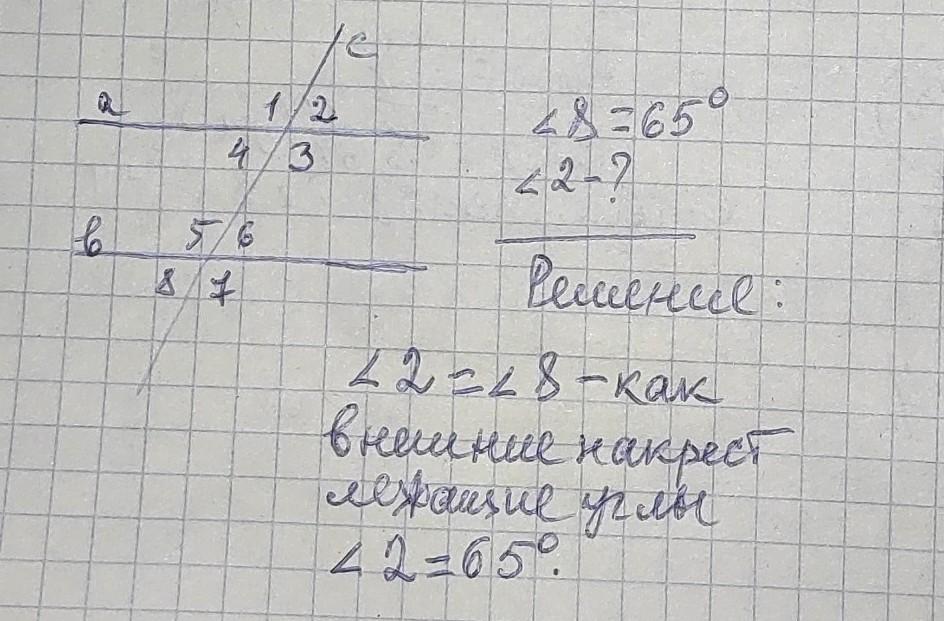 c
a 1 2
4 3
в 5 6
8 7
∠8=65°
∠2-?
Решение:
∠2=∠8-как
внешние накрест
лежащие углы
∠2=65°.